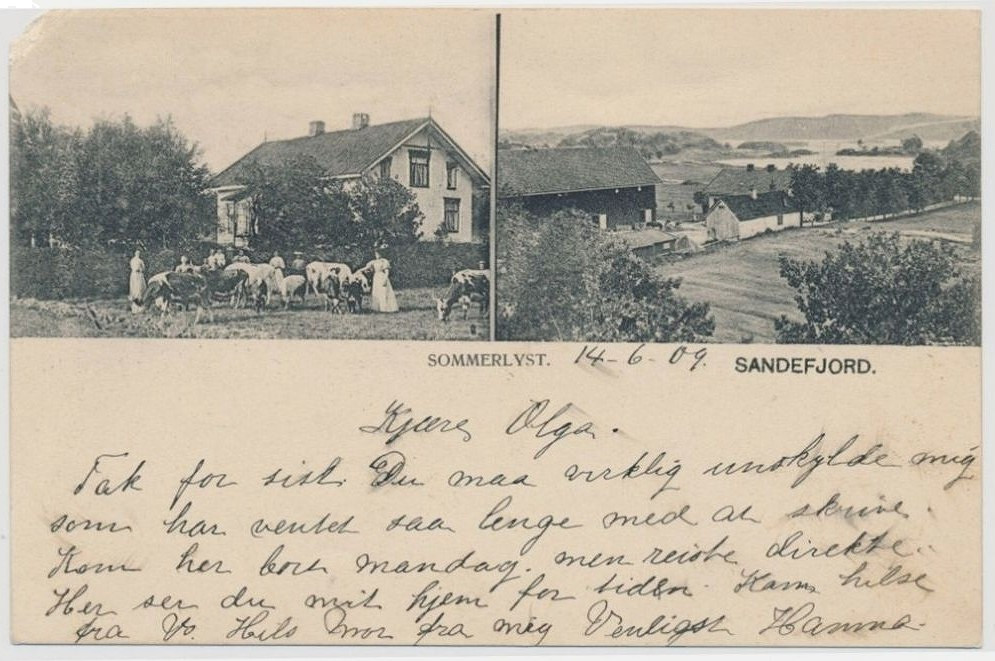 SOMMERLYST. 14-6-09. SANDEFJORD.
Kjære Olga.
Tak for sist. Du maa virklig unskylde mig
som har ventet saa lenge med at skrive.
Kom her bort mandag. men reiste direkte.
Her ser du mit hjem for tiden. Kan hilse
fra Vo. Hils Mor fra mig Venligst Hanna.